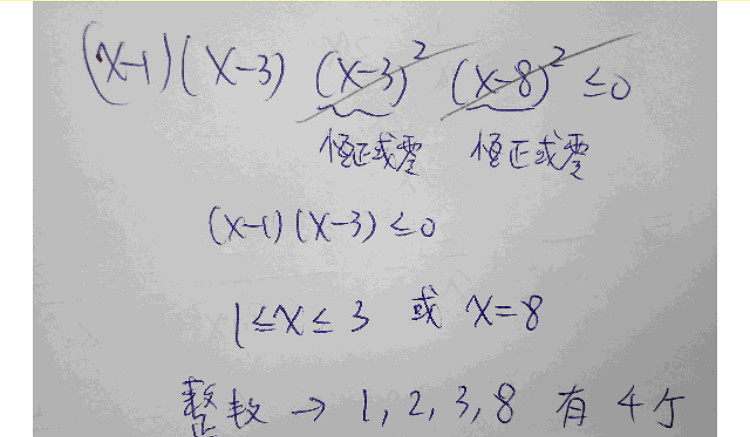 (x-1)(x-3)(x-3)²(x-8)²≤0
恆正或零 恆正或零
(x-1)(x-3)≤0
1≤x≤3 或 x=8
整数 → 1, 2, 3, 8 有 4 个